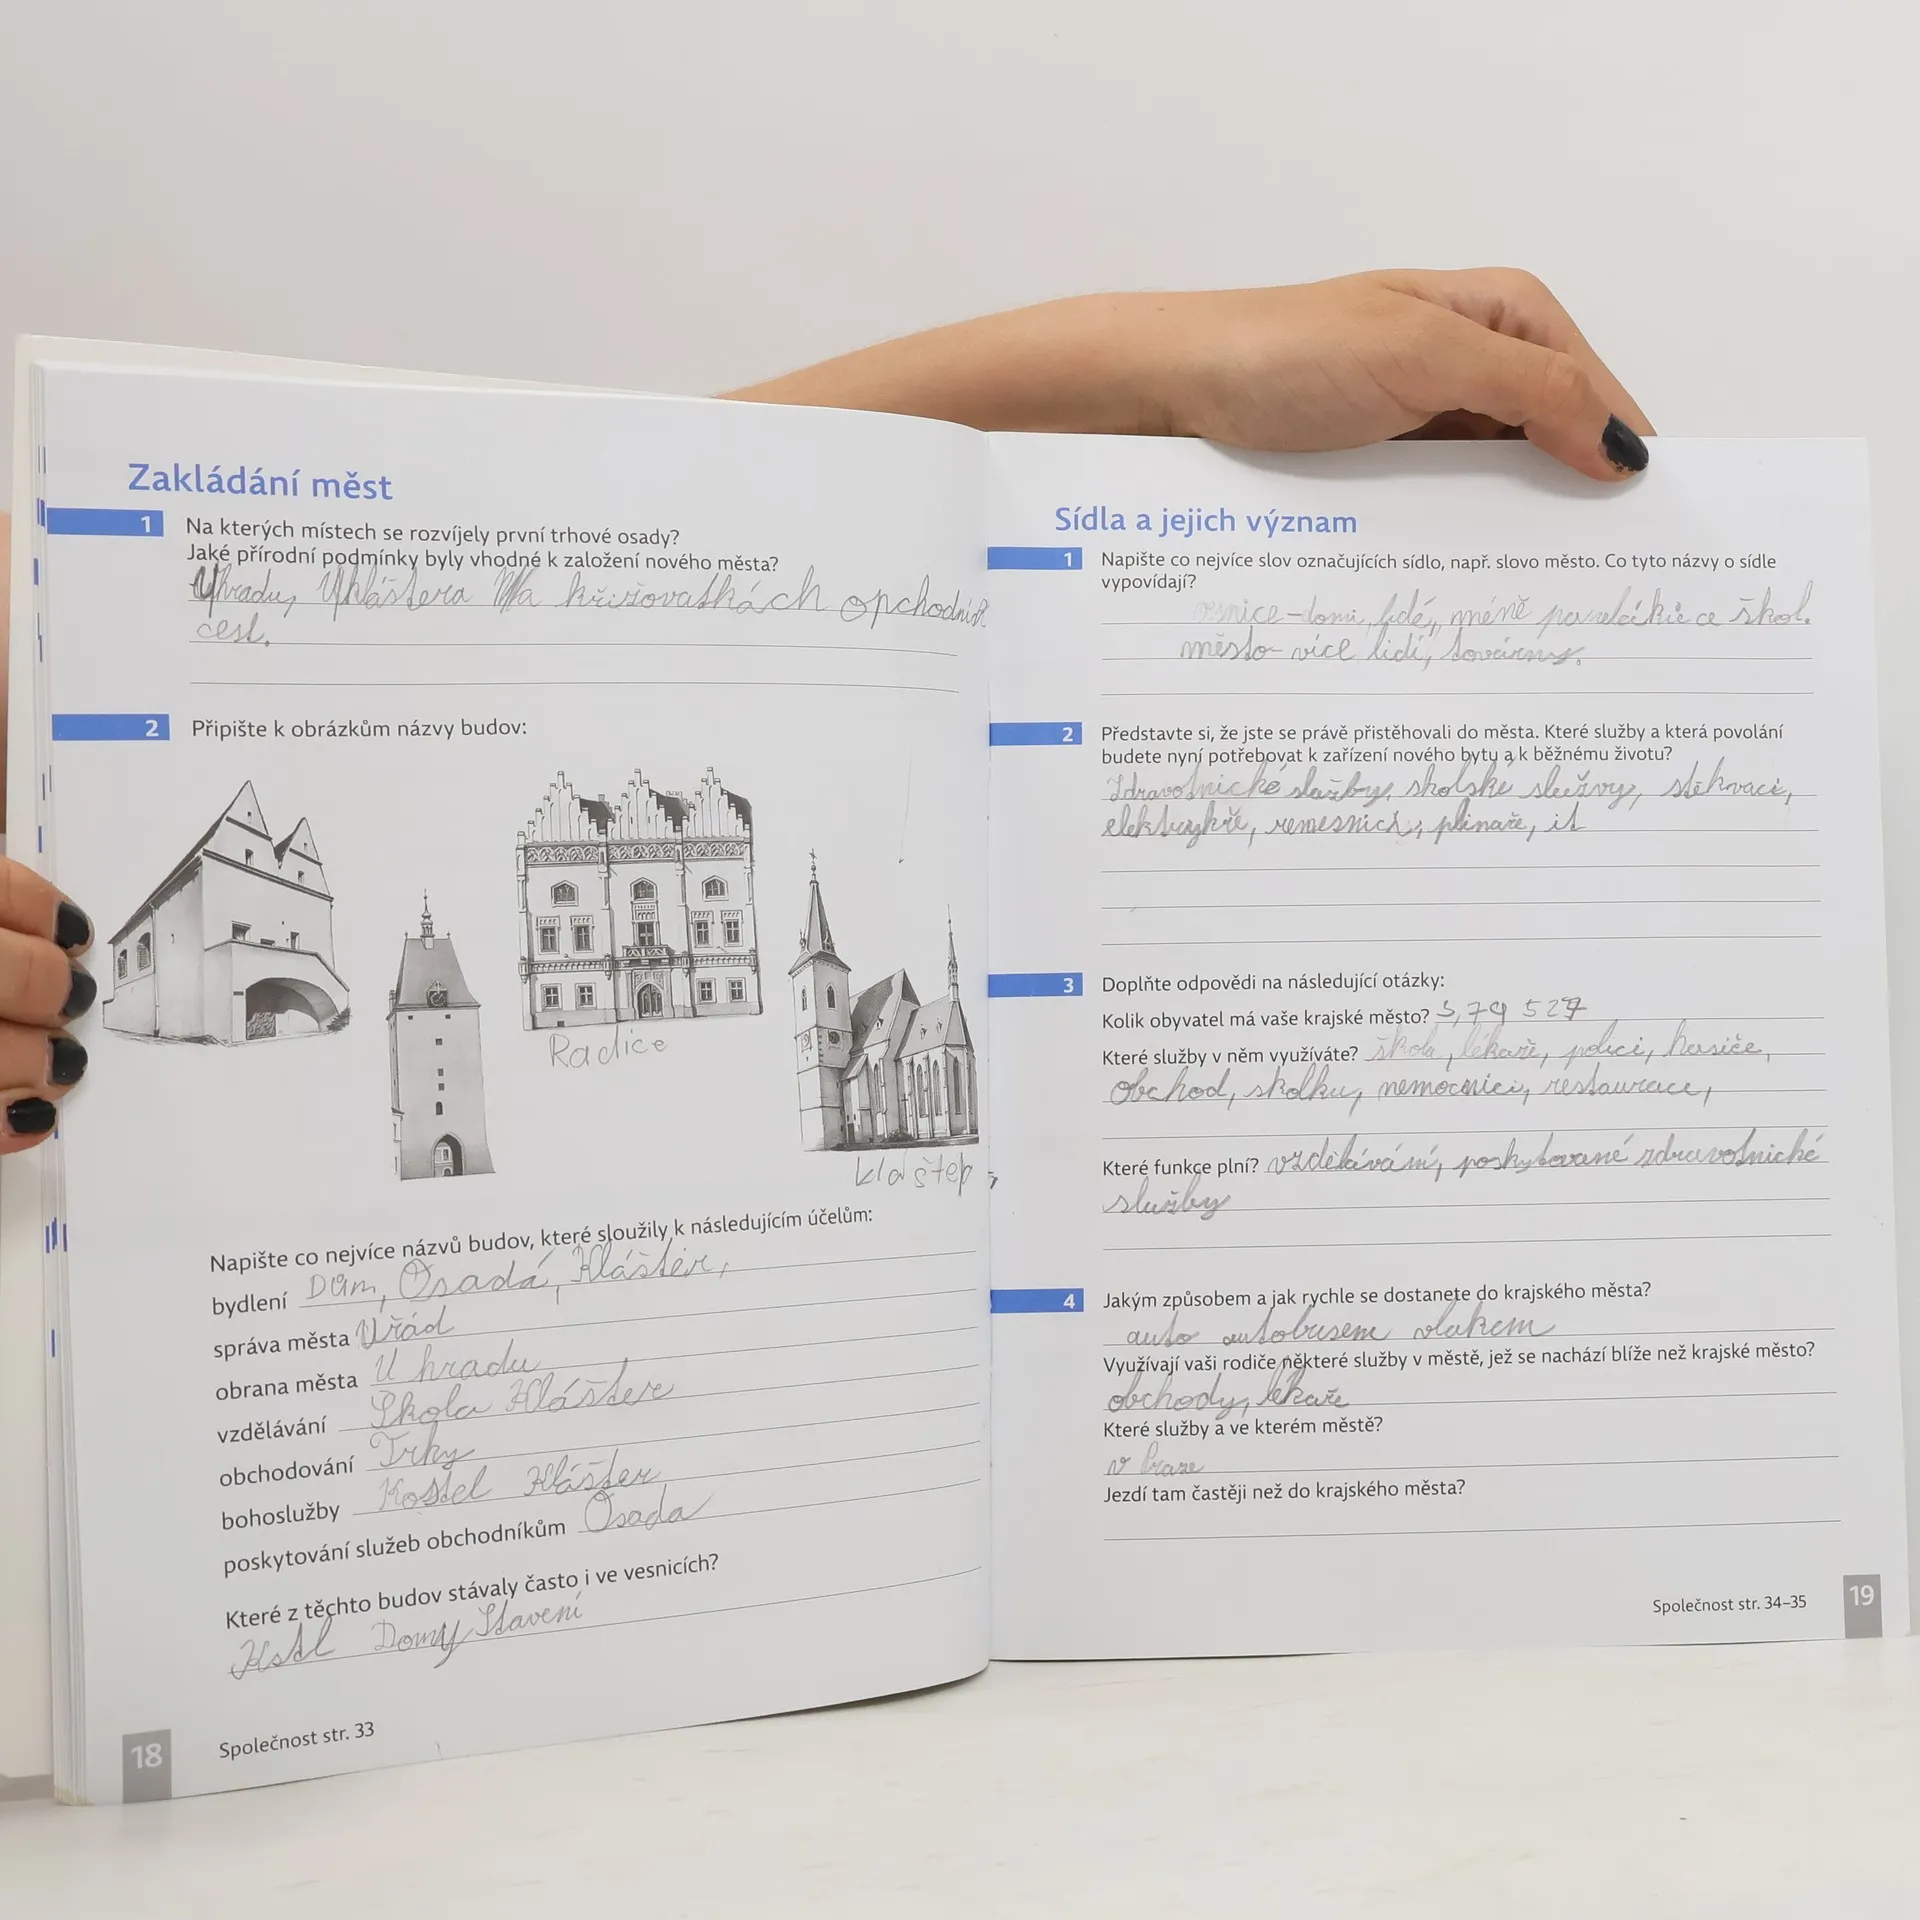 Zakládání měst
1 Na kterých místech se rozvíjely první trhové osady?
Jaké přírodní podmínky byly vhodné k založení nového města?
U hradu, U kláštera Na křižovatkách opchodních
cest.
2 Připište k obrázkům názvy budov:
Radice
klaštep
Napište co nejvíce názvů budov, které sloužily k následujícím účelům:
bydlení Dům, Osadá, Klášter,
správa města Úřad
obrana města U hradu
vzdělávání Škola Klášter
obchodování Trhy
bohoslužby Kostel Klášter
poskytování služeb obchodníkům Osada
Které z těchto budov stávaly často i ve vesnicích?
Kstl Domy Stavení
18 Společnost str. 33
Sídla a jejich význam
1 Napište co nejvíce slov označujících sídlo, např. slovo město. Co tyto názvy o sídle
vypovídají?
vesnice - domi, lidé, méně a škol.
město - více lidí, továrny.
2 Představte si, že jste se právě přistěhovali do města. Které služby a která povolání
budete nyní potřebovat k zařízení nového bytu a k běžnému životu?
Zdravotnické služby, skolské služvy, stěhvaci,
elektrykře, remesnici, plinaře, it
3 Doplňte odpovědi na následující otázky:
Kolik obyvatel má vaše krajské město? 3,79 527
Které služby v něm využíváte? škola, lékaře, polici, hasiče,
obchod, skolku, nemocnici, restaurace,
Které funkce plní? vzdělávání, poskytované zdravotnické
služby
4 Jakým způsobem a jak rychle se dostanete do krajského města?
auto autobusem vlakem
Využívají vaši rodiče některé služby v městě, jež se nachází blíže než krajské město?
obchody, lékaře
Které služby a ve kterém městě?
v
Jezdí tam častěji než do krajského města?
Společnost str. 34–35 19